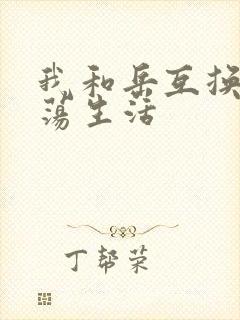 我和岳互换
荡生活
丁帮荣